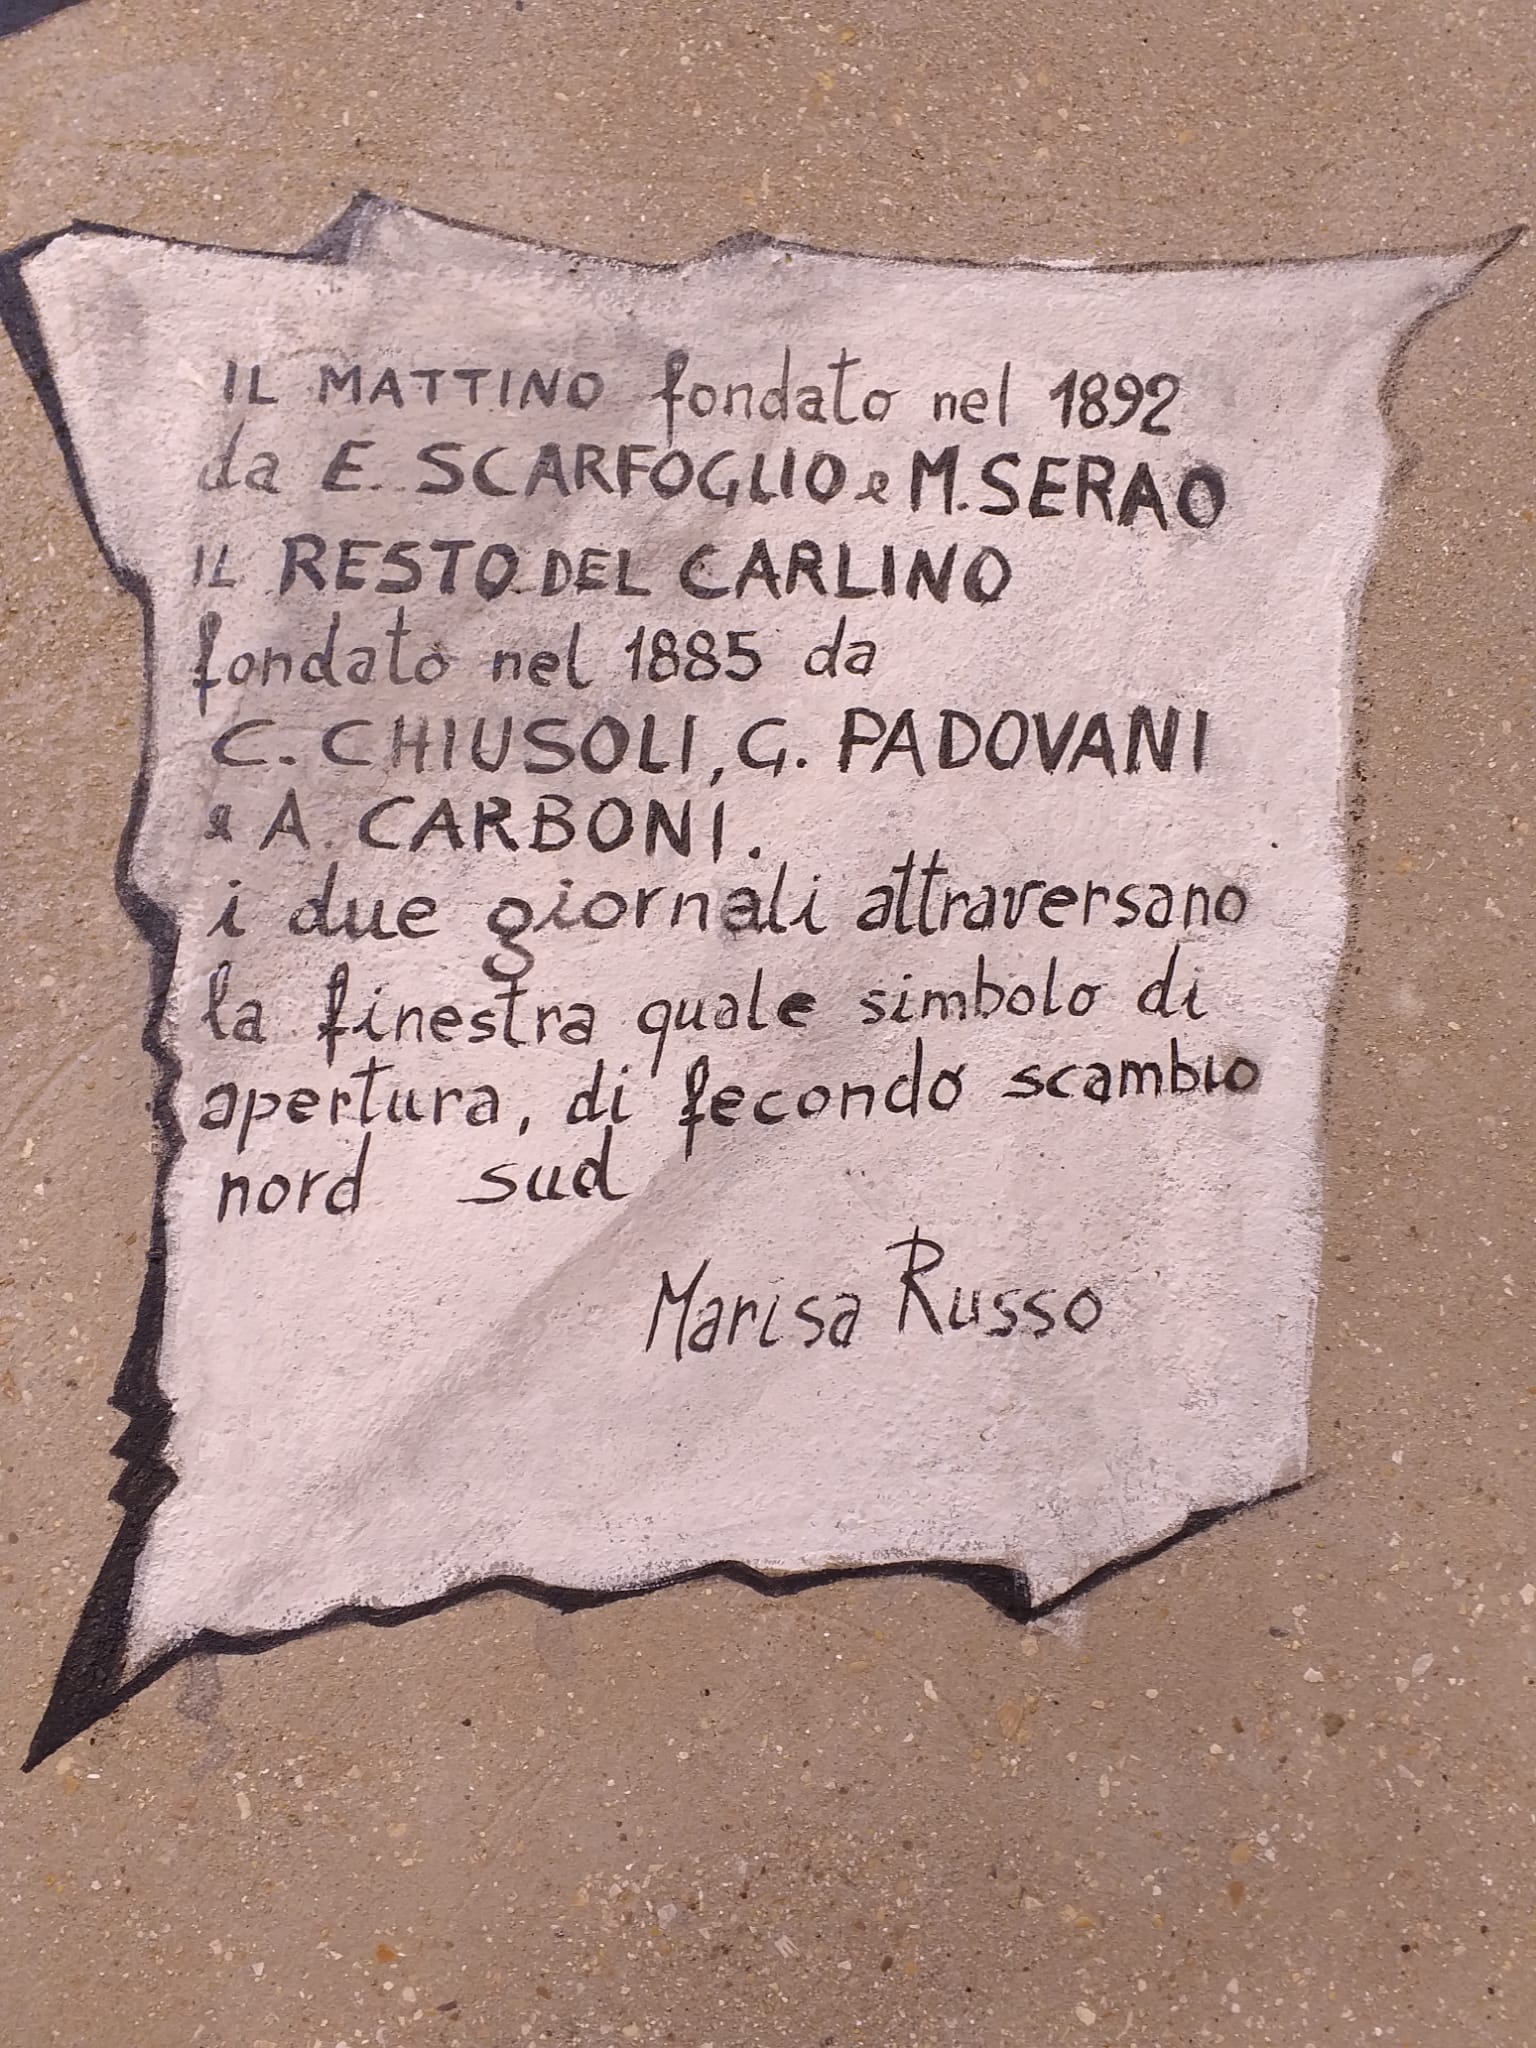 IL MATTINO fondato nel 1892
da E. SCARFOGLIO e M. SERAO
IL RESTO DEL CARLINO
fondato nel 1885 da
C. CHIUSOLI, G. PADOVANI
e A. CARBONI.
i due giornali attraversano
la finestra quale simbolo di
apertura, di fecondo scambio
nord sud
Marisa Russo